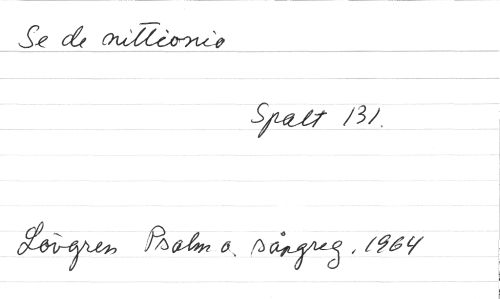 Se de nittionio
Spalt 131.
Lövgren Psalm o. sångreg. 1964